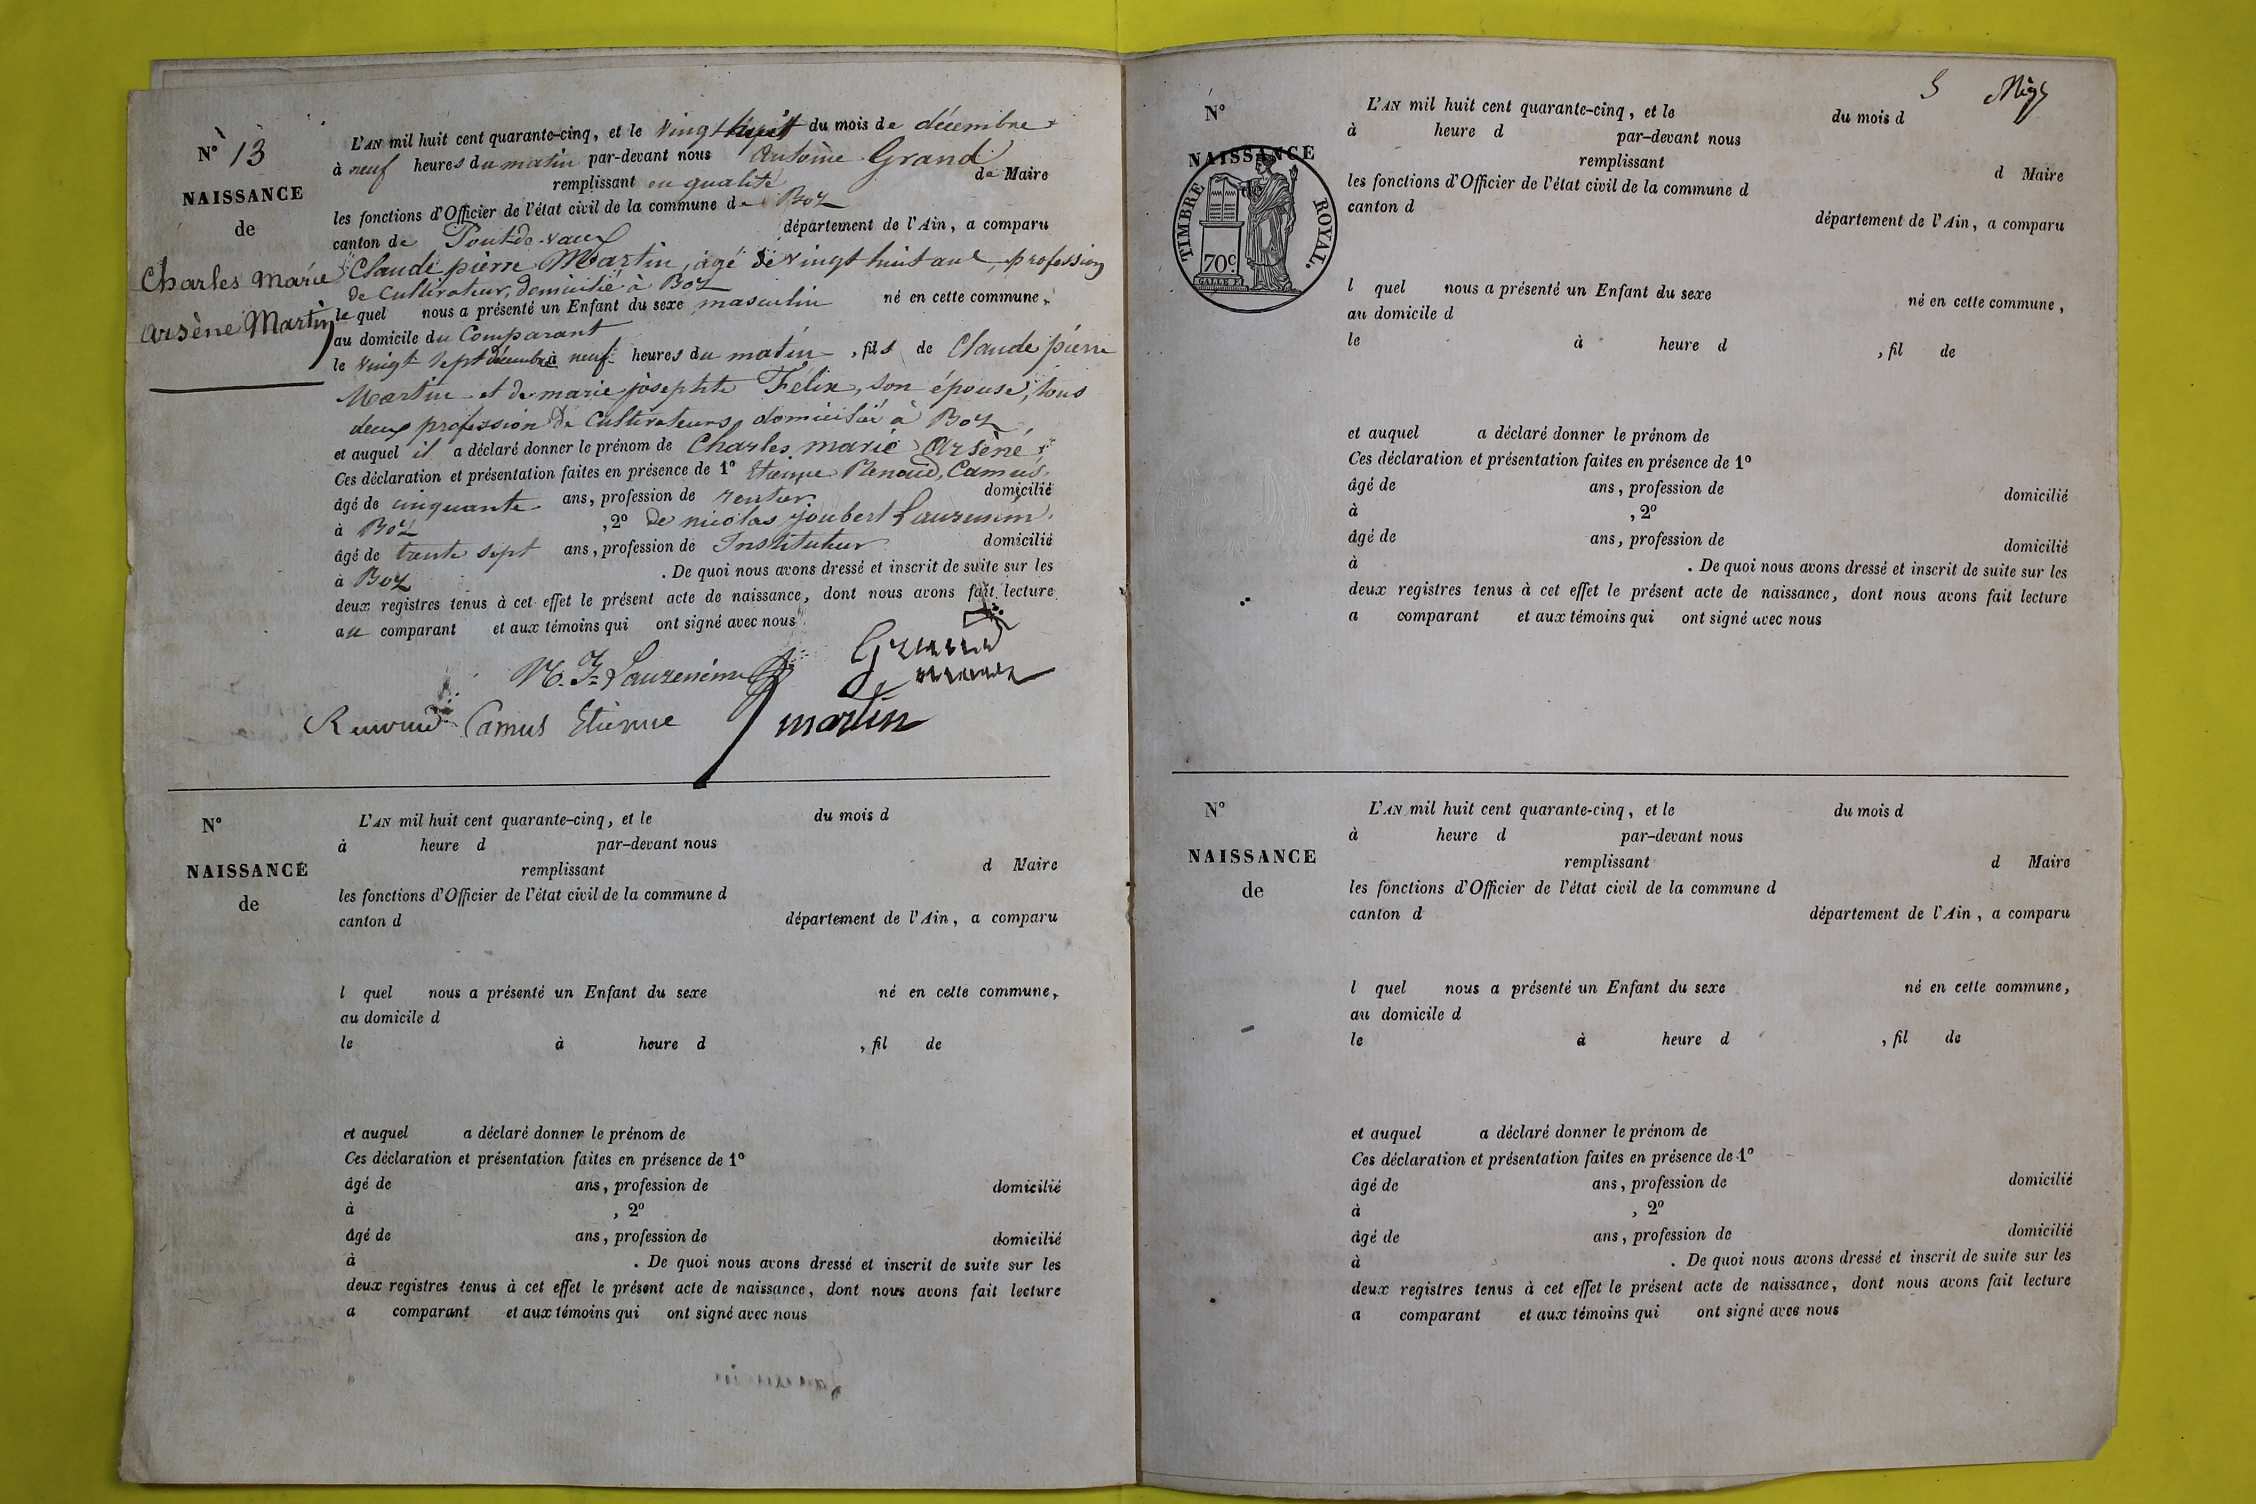 N° 13
NAISSANCE
de
Charles Marie
Arsène Martin
L'AN mil huit cent quarante-cinq, et le vingt huit du mois de décembre
à neuf heures du matin par-devant nous Antoine Grand
remplissant en qualité de Maire
les fonctions d'Officier de l'état civil de la commune de Boz
canton de Pont-de-vaux département de l'Ain, a comparu
Claude pièrre Martin, agé de vingt huit ans, profession
de Cultivateur, domicilié à Boz
lequel nous a présenté un Enfant du sexe masculin né en cette commune,
au domicile du Comparant
le vingt sept décembre à neuf heures du matin, fils de Claude pièrre
Martin et de marie josephte Félix, son épouse, tous
deux profession de Cultivateurs, domicilié à Boz
et auquel il a déclaré donner le prénom de Charles marie Arsène
Ces déclaration et présentation faites en présence de 1° Etienne Renaud, Camus,
âgé de cinquante ans, profession de rentier domicilié
à Boz, 2° de nicolas joubert Lauzenim
âgé de trente sept ans, profession de Instituteur domicilié
à Boz. De quoi nous avons dressé et inscrit de suite sur les
deux registres tenus à cet effet le présent acte de naissance, dont nous avons fait lecture
au comparant et aux témoins qui ont signé avec nous
Grand
maire
Camus Etienne martin
N°
NAISSANCE
de
L'AN mil huit cent quarante-cinq, et le du mois d
à heure d par-devant nous
remplissant d Maire
les fonctions d'Officier de l'état civil de la commune d
canton d département de l'Ain, a comparu
l quel nous a présenté un Enfant du sexe né en cette commune,
au domicile d
le à heure d , fil de
et auquel a déclaré donner le prénom de
Ces déclaration et présentation faites en présence de 1°
âgé de ans, profession de domicilié
à , 2°
âgé de ans, profession de domicilié
à . De quoi nous avons dressé et inscrit de suite sur les
deux registres tenus à cet effet le présent acte de naissance, dont nous avons fait lecture
a comparant et aux témoins qui ont signé avec nous
5
N°
NAISSANCE
TIMBRE ROYAL.
70c
L'AN mil huit cent quarante-cinq, et le du mois d
à heure d par-devant nous
remplissant d Maire
les fonctions d'Officier de l'état civil de la commune d
canton d département de l'Ain, a comparu
l quel nous a présenté un Enfant du sexe né en cette commune,
au domicile d
le à heure d , fil de
et auquel a déclaré donner le prénom de
Ces déclaration et présentation faites en présence de 1°
âgé de ans, profession de domicilié
à , 2°
âgé de ans, profession de domicilié
à . De quoi nous avons dressé et inscrit de suite sur les
deux registres tenus à cet effet le présent acte de naissance, dont nous avons fait lecture
a comparant et aux témoins qui ont signé avec nous
N°
NAISSANCE
de
L'AN mil huit cent quarante-cinq, et le du mois d
à heure d par-devant nous
remplissant d Maire
les fonctions d'Officier de l'état civil de la commune d
canton d département de l'Ain, a comparu
l quel nous a présenté un Enfant du sexe né en cette commune,
au domicile d
le à heure d , fil de
et auquel a déclaré donner le prénom de
Ces déclaration et présentation faites en présence de 1°
âgé de ans, profession de domicilié
à , 2°
âgé de ans, profession de domicilié
à . De quoi nous avons dressé et inscrit de suite sur les
deux registres tenus à cet effet le présent acte de naissance, dont nous avons fait lecture
a comparant et aux témoins qui ont signé avec nous